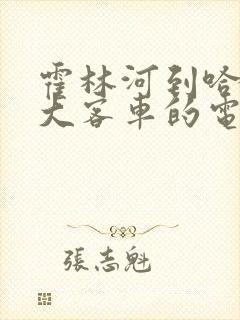 霍林河到哈
大客車的電
張志魁